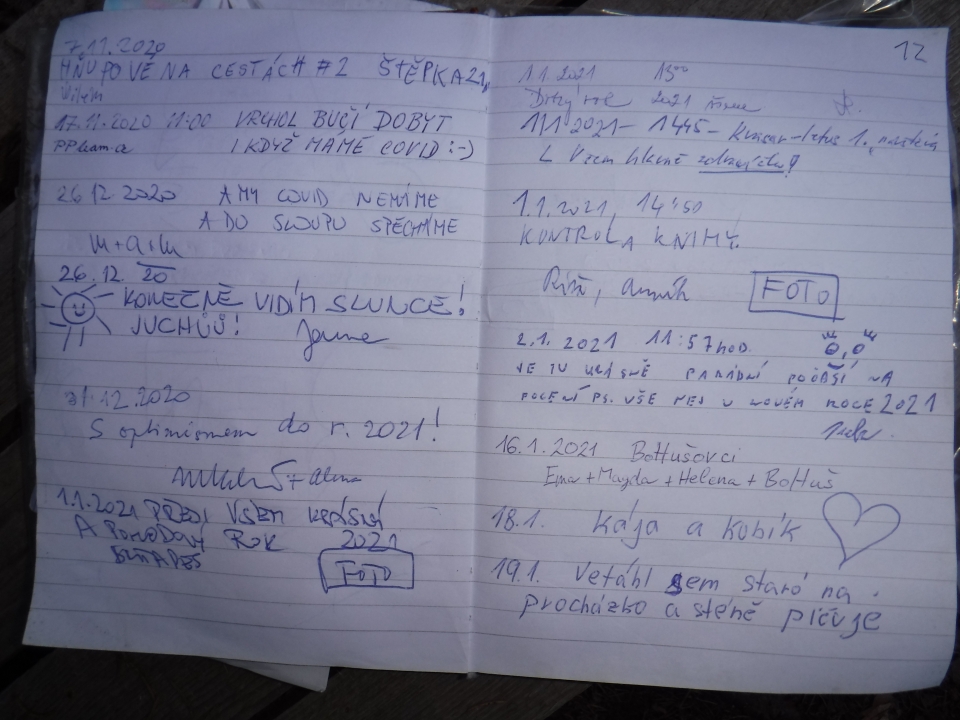 7.11.2020
HŇUPOVĚ NA CESTÁCH #2 ŠTĚPKA21
Vilém
17.11.2020 11:00 VRCHOL BUČÍ DOBYT
I KDYŽ MÁME COVID :-)
26.12.2020 A MY COVID NEMÁME
A DO SLOUPU SPĚCHÁME
M+a+M
26.12 20
KONEČNĚ VIDÍM SLUNCE!
JUCHŮŮ!
31.12.2020
S optimismem do r. 2021!
1.1.2021 PŘEJI VŠEM KRÁSNÝ
A POHODOVÝ ROK 2021
FOTO
12
1.1.2021 13°°
Dobrý rok 2021
1.1.2021- 1445-
Všem hlavně
1.1.2021, 14:50
KONTROLA KNIHY.
FOTO
2.1.2021 11:57 hod.
JE TU KRÁSNĚ PARÁDNÍ POČASÍ NA
FOCENÍ PS. VŠE NEJ V NOVÉM ROCE 2021
16.1.2021 BoHušovci
Ema + Magda + Helena + BoHuš
18.1. Kája a Kubík
19.1. Vetáhl sem staró na
procházko a sténě pičuje